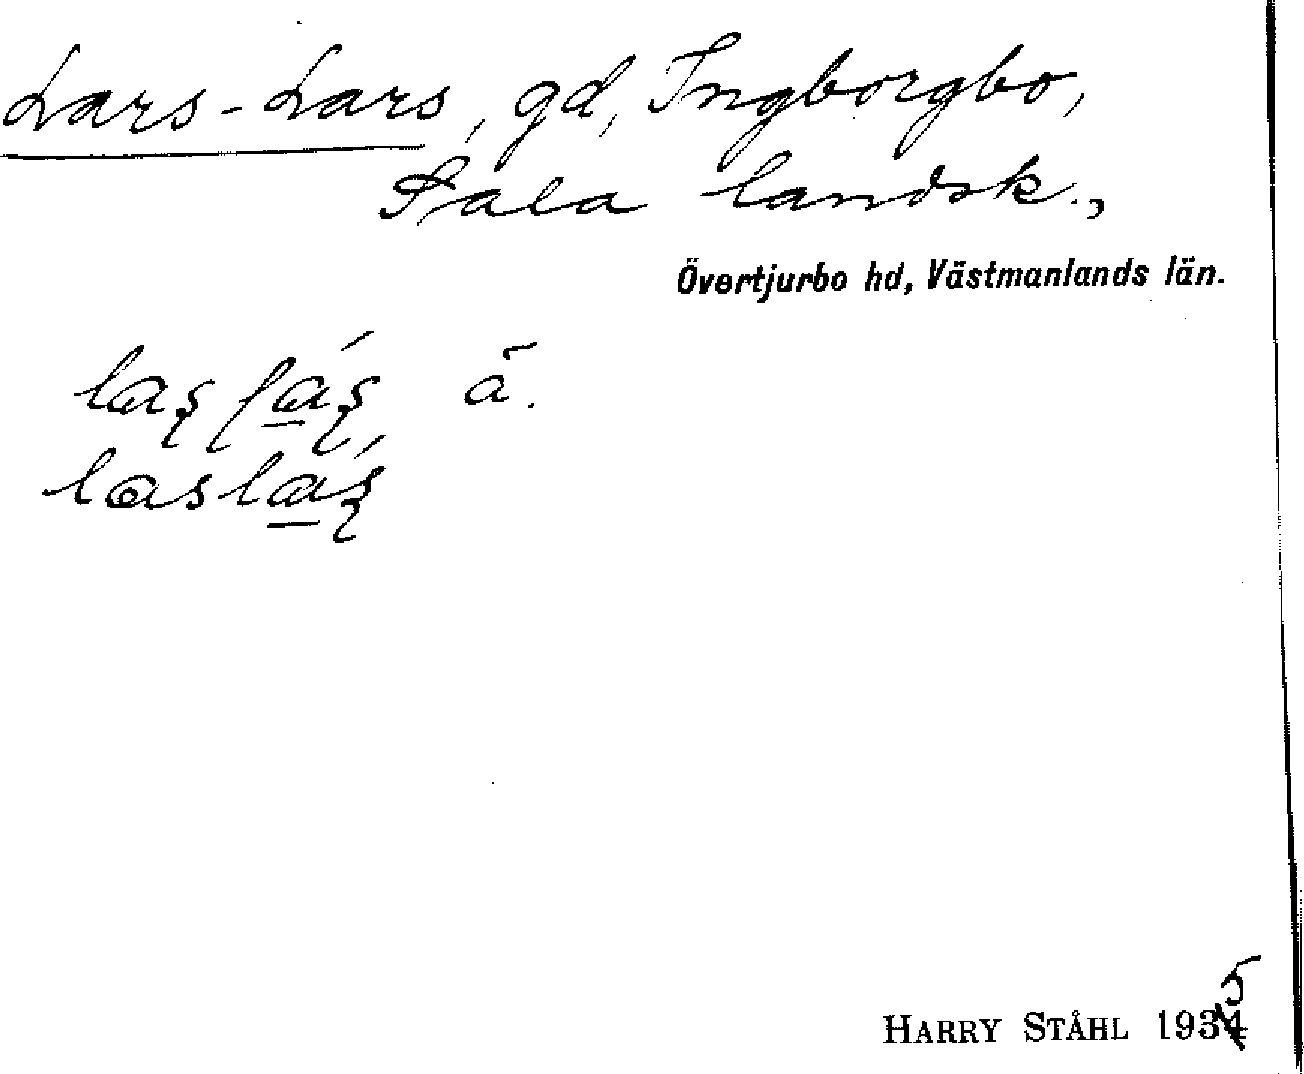 Lars-Lars, gd, Ingborgbo,
Sala landsk.,
Övertjurbo hd, Västmanlands län.
HARRY STÅHL 1935